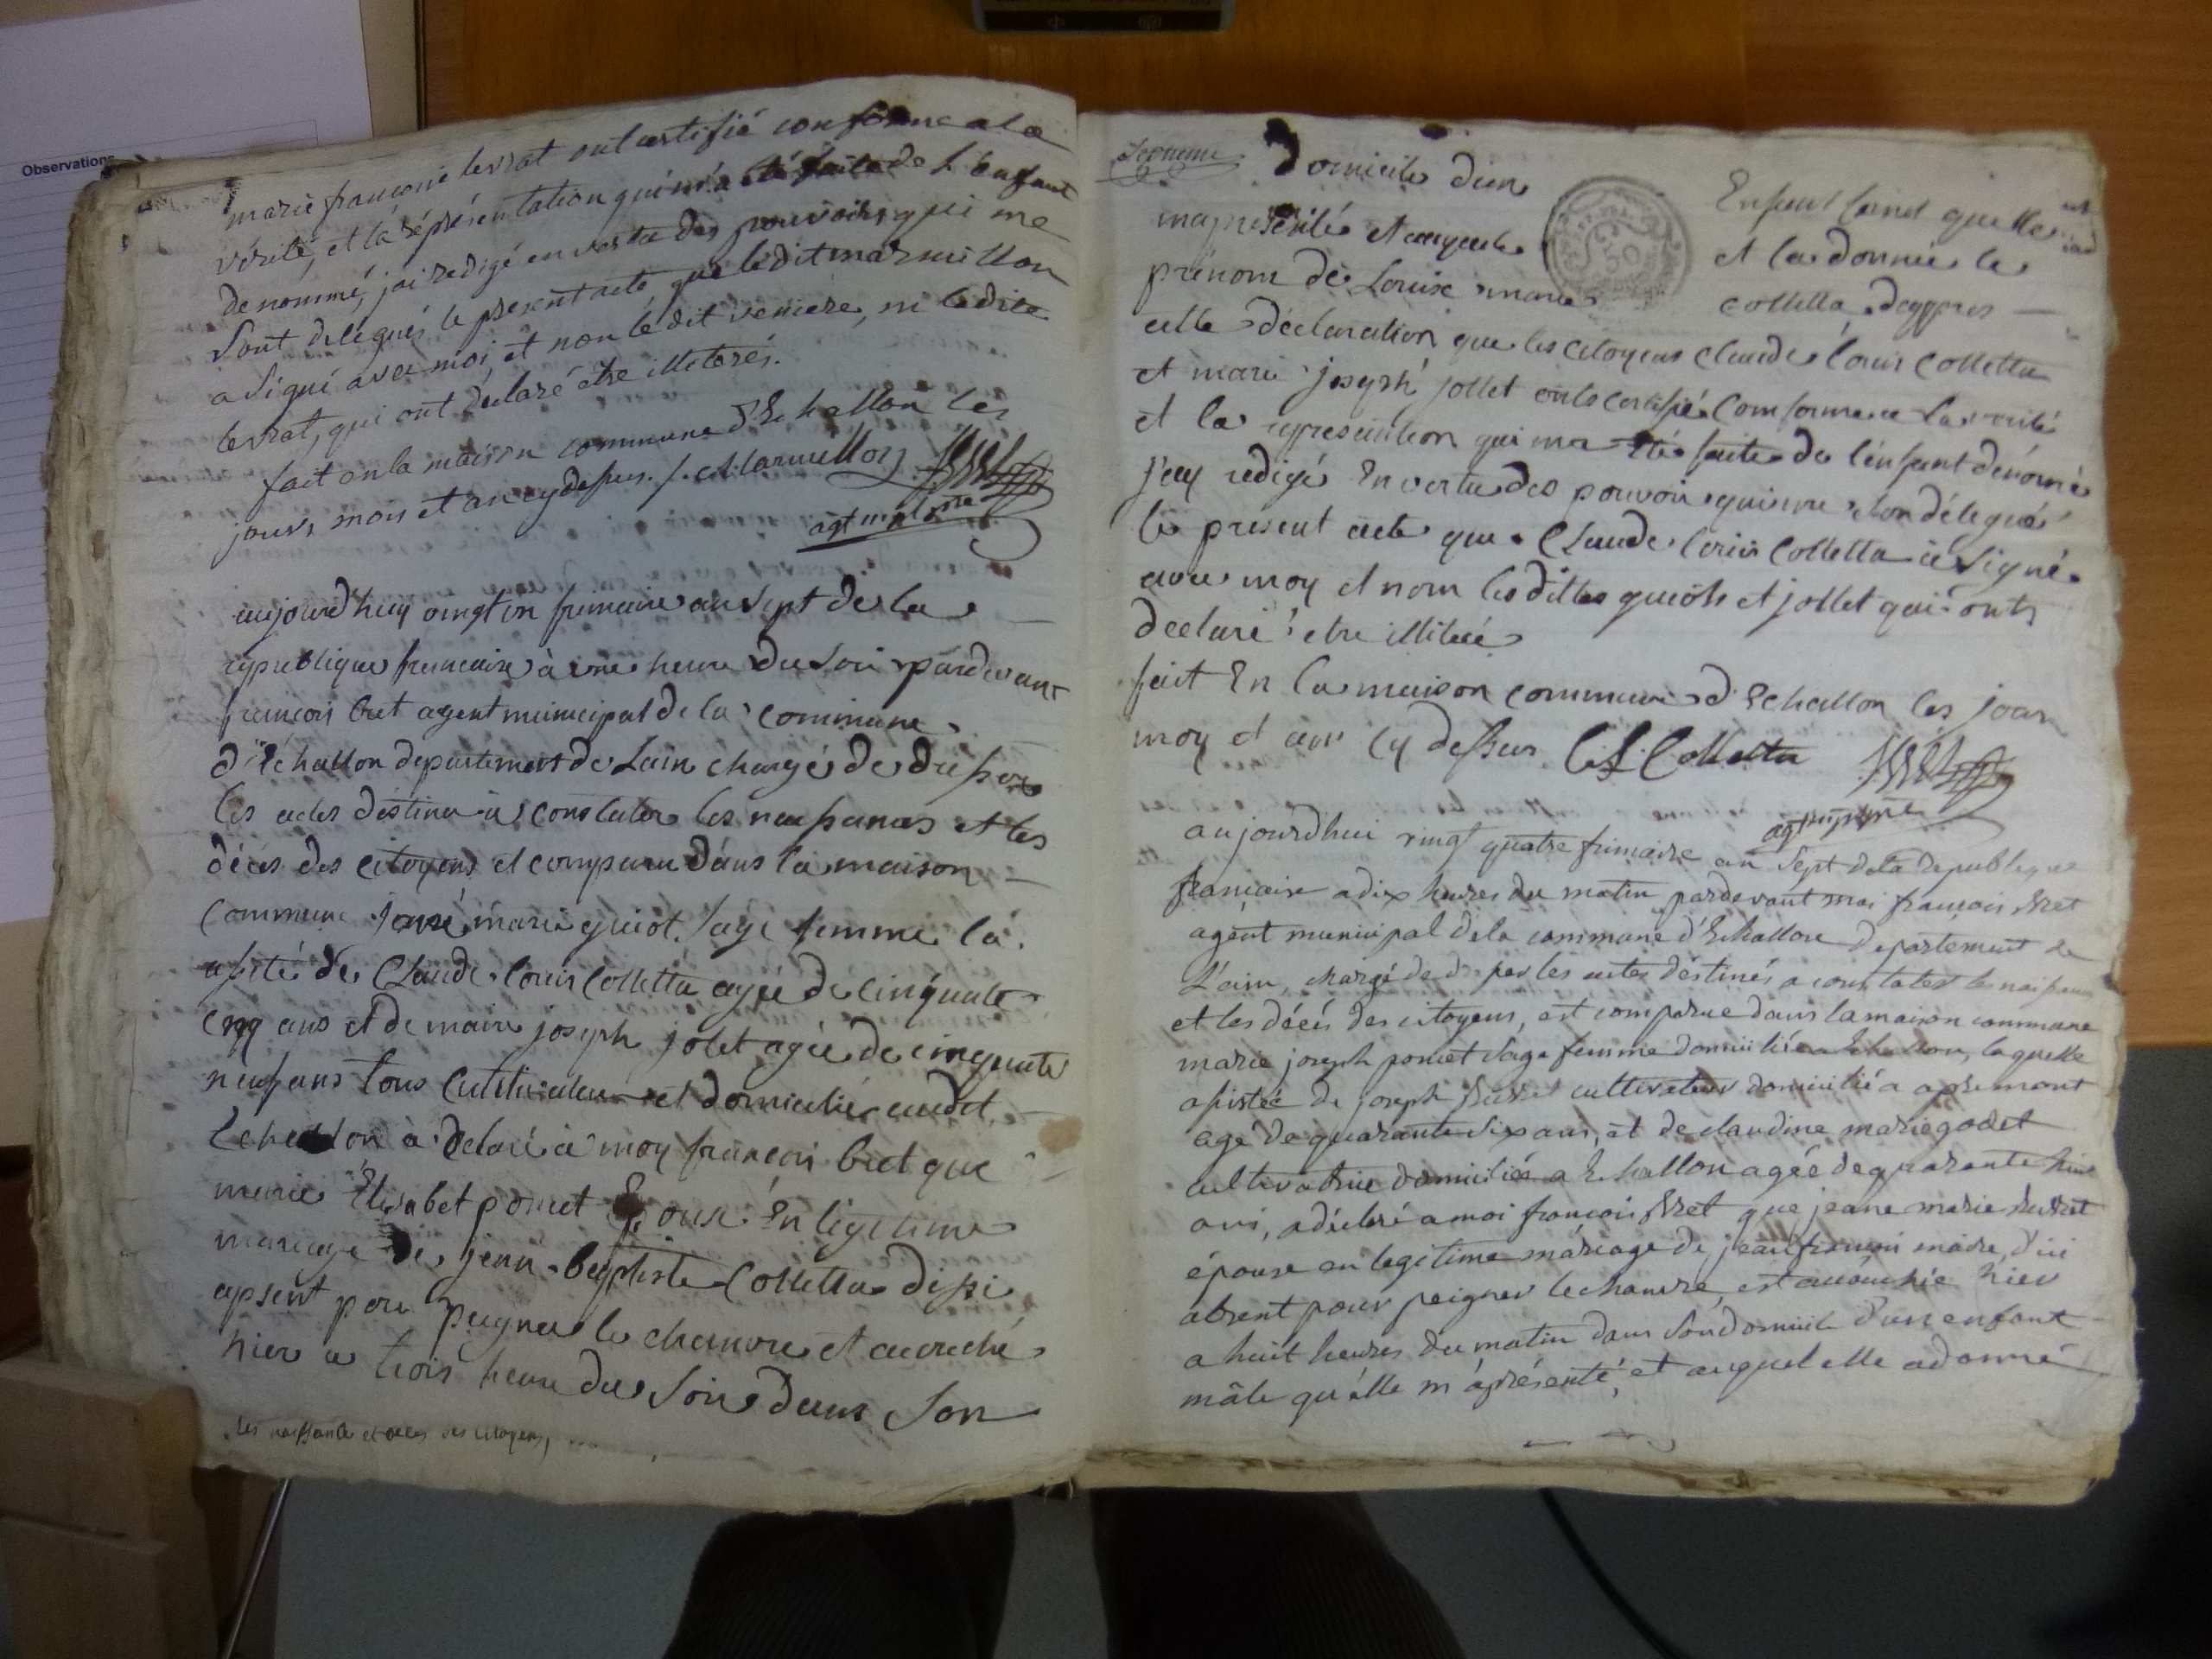 Observations
marie francoise levrat ont certifié conforme a la
vérité, et la réprésentation qui m'a été faite de l'enfant
denommé, j'ai redigé en vertu des pouvoirs qui me
sont delegués le present acte que ledit marmillon
a signé avec moi, et non ledit veniere, ni ladite
levrat, qui ont déclaré être illeterés.
fait en la maison commune d'Echallon les
jours mois et an cy dessus. f. Marmillon
agt mpl
aujourd'huy vingt un frimaire an sept de la
republique francaise à une heure du soir pardevant
francois bret agent municipal de la commune
d'Echallon departement de Lain chargé de dresser
les actes destiner à constater les naissances et les
décés des citoyens et comparu dans la maison
commune marie guiot sage femme la
assisté de Claude Louis Colletta agée de cinquante
cinq ans et de marie joseph jolet agée de cinquante
neuf ans tous cultivateur et domicilié audit
Echallon à declaré à moy francois bret que
marie Elisabet poncet Epouse En legitime
mariage de jean baptiste Colletta dissi
apsent pour peigner le chanvre et accuché
hier a trois heure du soir dans son
les naissance et deces des citoyens,
Domicile d'un Enfant femel quelle
ma presenté et auquele et la donnée le
prénom de Louise marie colletta daggres
celle déclaration que les citoyens Claude Louis Colletta
et marie joseph jollet onts certifié conforme a la verité
et la representation qui ma été faite de l'enfant denomé
j'ey redigé En vertu des pouvoir qui me son délegués
le present acte que Claude Louis Colletta à signé
avec moy et nom les dittes guiot et jollet qui onts
declaré etre illiteré
fait En la maison commune d'Echallon les jour
moy et an cy dessus C. L. Colletta
agt mpl
aujourdhui vingt quatre frimaire an sept dela republique
francaise a dix heures du matin pardevant moi francois bret
agent municipal dela commune d'Echallon departement de
L'ain, chargé de dresser les actes déstinés a constater les naissances
et les décés des citoyens, est comparue dans la maison commune
marie joseph poncet sage femme domiciliée a Echallon, laquelle
assistée de joseph cultivateur domicilié a apremont
agé de quarante six ans, et de claudine marie godet
cultivatrice domiciliée a Echallon agée de quarante
ans, a déclaré a moi francois bret que jeane marie
épouse en legitime mariage de jean francois maire, d'ici
absent pour peigner le chanvre, est accouchée hier
a huit heures du matin dans son domicile d'un enfant
mâle qu'elle m'a présenté, et auquel elle a donné